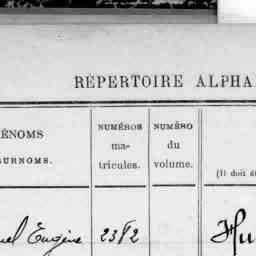 RÉPERTOIRE ALPHA
ÉNOMS
SURNOMS.
NUMÉROS
ma-
tricules.
NUMÉRO
du
volume.
(Il doit ê
uel Eugène 2382 Hu